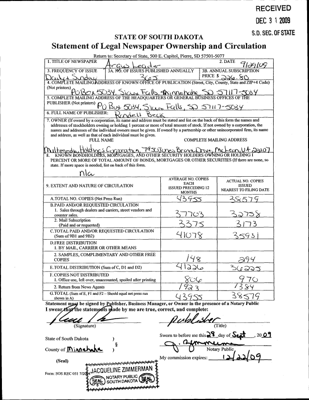 RECEIVED
DEC 31 2009
S.D. SEC. OF STATE
STATE OF SOUTH DAKOTA
Statement of Legal Newspaper Ownership and Circulation
Return to: Secretary of State, 500 E. Capitol, Pierre, SD 57501-5077
1. TITLE OF NEWSPAPER Argus Leader
2. DATE
3. FREQUENCY OF ISSUE
3A. NO. OF ISSUES PUBLISHED ANNUALLY 365
3B. ANNUAL SUBSCRIPTION PRICE $
4. COMPLETE MAILING ADDRESS OF KNOWN OFFICE OF PUBLICATION (Street, City, County, State and ZIP+4 Code)
(Not printers) PO Box 5034 Sioux Falls Minnehaha SD 57117-5034
5. COMPLETE MAILING ADDRESS OF THE HEADQUARTERS OR GENERAL BUSINESS OFFICES OF THE
PUBLISHER (Not printer) PO Box 5034, Sioux Falls, SD 57117-5034
6. FULL NAME OF PUBLISHER: Randell Beck
7. OWNER (If owned by a corporation, its name and address must be stated and list on the back of this form the names and
addresses of stockholders owning or holding 1 percent or more of total amount of stock. If not owned by a corporation, the
names and addresses of the individual owners must be given. If owned by a partnership or other unincorporated firm, its name
and address, as well as that of each individual must be given.
FULL NAME
COMPLETE MAILING ADDRESS
8. KNOWN BONDHOLDERS, MORTGAGES, AND OTHER SECURITY HOLDERS OWNING OR HOLDING 1
PERCENT OR MORE OF TOTAL AMOUNT OF BONDS, MORTGAGES OR OTHER SECURITIES (If there are none, so
state. If more space is needed, list on back of this form.
n/a
9. EXTENT AND NATURE OF CIRCULATION
AVERAGE NO. COPIES EACH ISSUED PRECEDING 12 MONTHS
ACTUAL NO. COPIES ISSUED NEAREST TO FILING DATE
A. TOTAL NO. COPIES (Net Press Run) 43955 38579
B. PAID AND/OR REQUESTED CIRCULATION
1. Sales through dealers and carriers, street vendors and
counter sales. 37703 32758
2. Mail Subscription
(Paid and or requested) 3375 3173
C. TOTAL PAID AND/OR REQUESTED CIRCULATION
(Sum of 9B1 and 9B2) 41078 35931
D. FREE DISTRIBUTION
1. BY MAIL, CARRIER OR OTHER MEANS
2. SAMPLES, COMPLIMENTARY AND OTHER FREE
COPIES 148 294
E. TOTAL DISTRIBUTION (Sum of C, D1 and D2) 41226 36225
F. COPIES NOT DISTRIBUTED
1. Office use, left over, unaccounted, spoiled after printing 806 970
2. Return from News Agents 1923 1384
G. TOTAL (Sum of E, F1 and F2 - Should equal net press run
shown in A) 43955 38579
Statement must be signed by Publisher, Business Manager, or Owner in the presence of a Notary Public
I swear that the statements made by me are true, correct, and complete:
(Signature)
publisher
(Title)
State of South Dakota )
County of Minnehaha )
Sworn to before me this day of Sept, 2009
My commission expires: 12/22/09
(Seal)
JACQUELINE ZIMMERMAN
NOTARY PUBLIC
SOUTH DAKOTA